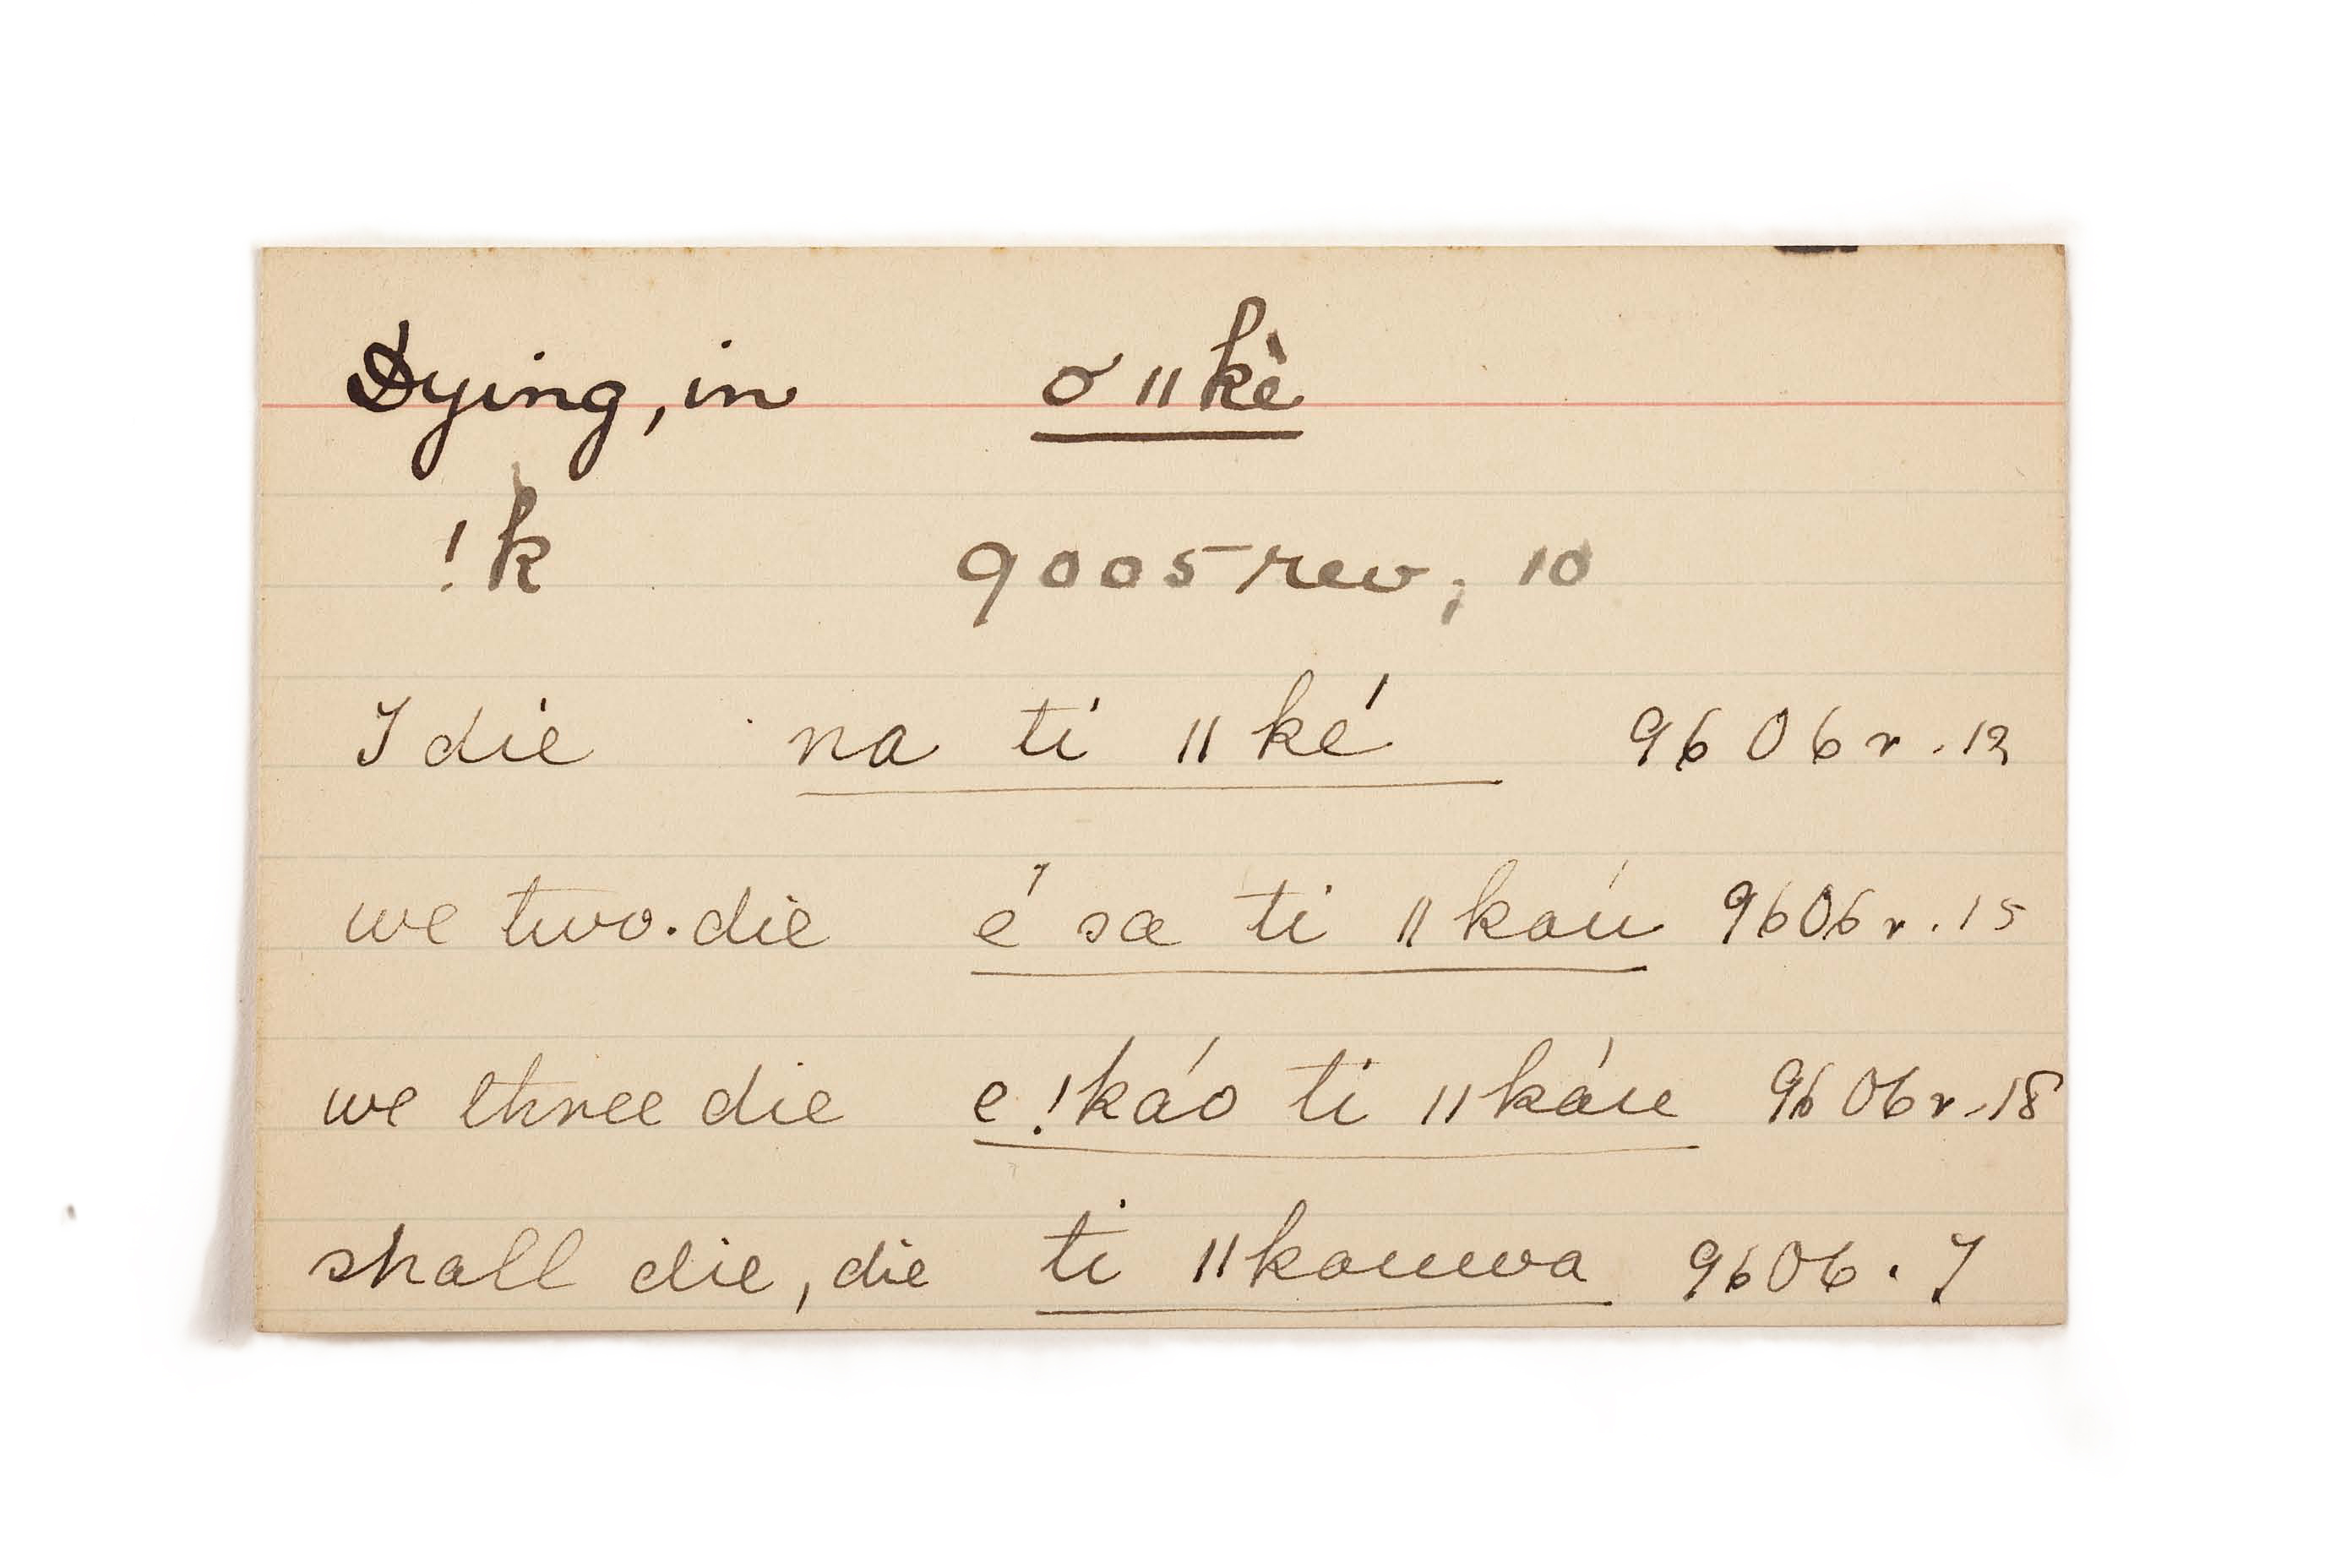 Dying, in o ǁkè
!k 9005 rev, 10
I die na ti ǁ ké 9606 r. 12
we two. die é sa ti ǁ kaú 9606 r. 15
we three die e !káo ti ǁ káu 9606 r. 18
shall die, die ti ǁkauwa 9606. 7